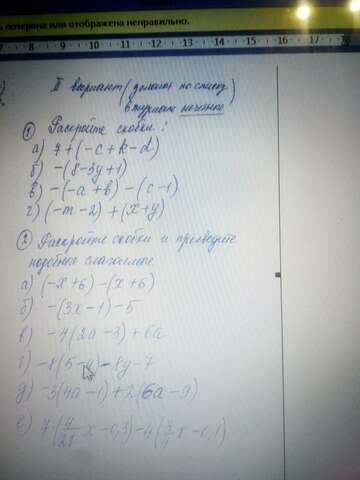 ь потеряна или отображена неправильно.
7 8 9 10 11 12 13 14 15 16 17 18
II вариант (
в журнале нечётное
① Раскройте скобки:
а) 7+(-c+k-d)
б) -(8-3y+1)
в) -(-a+b)-(c-1)
г) (-m-2)+(x+y)
② Раскройте скобки и приведите
подобные слагаемые
а) (-x+6)-(x+6)
б) -(3x-1)-5
в) -4(2a-3)+6a
г) -8(5-y)-8y-7
д) -3(4a-1)+2(6a-9)
е) 7(4/21 x-0,3)-4(x-1,1)